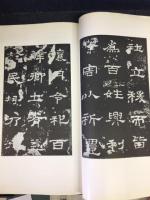 社立稷而
為百姓興利
除害以祈豐
穰月令祀百
辟卿士有益
於民矧乃孔